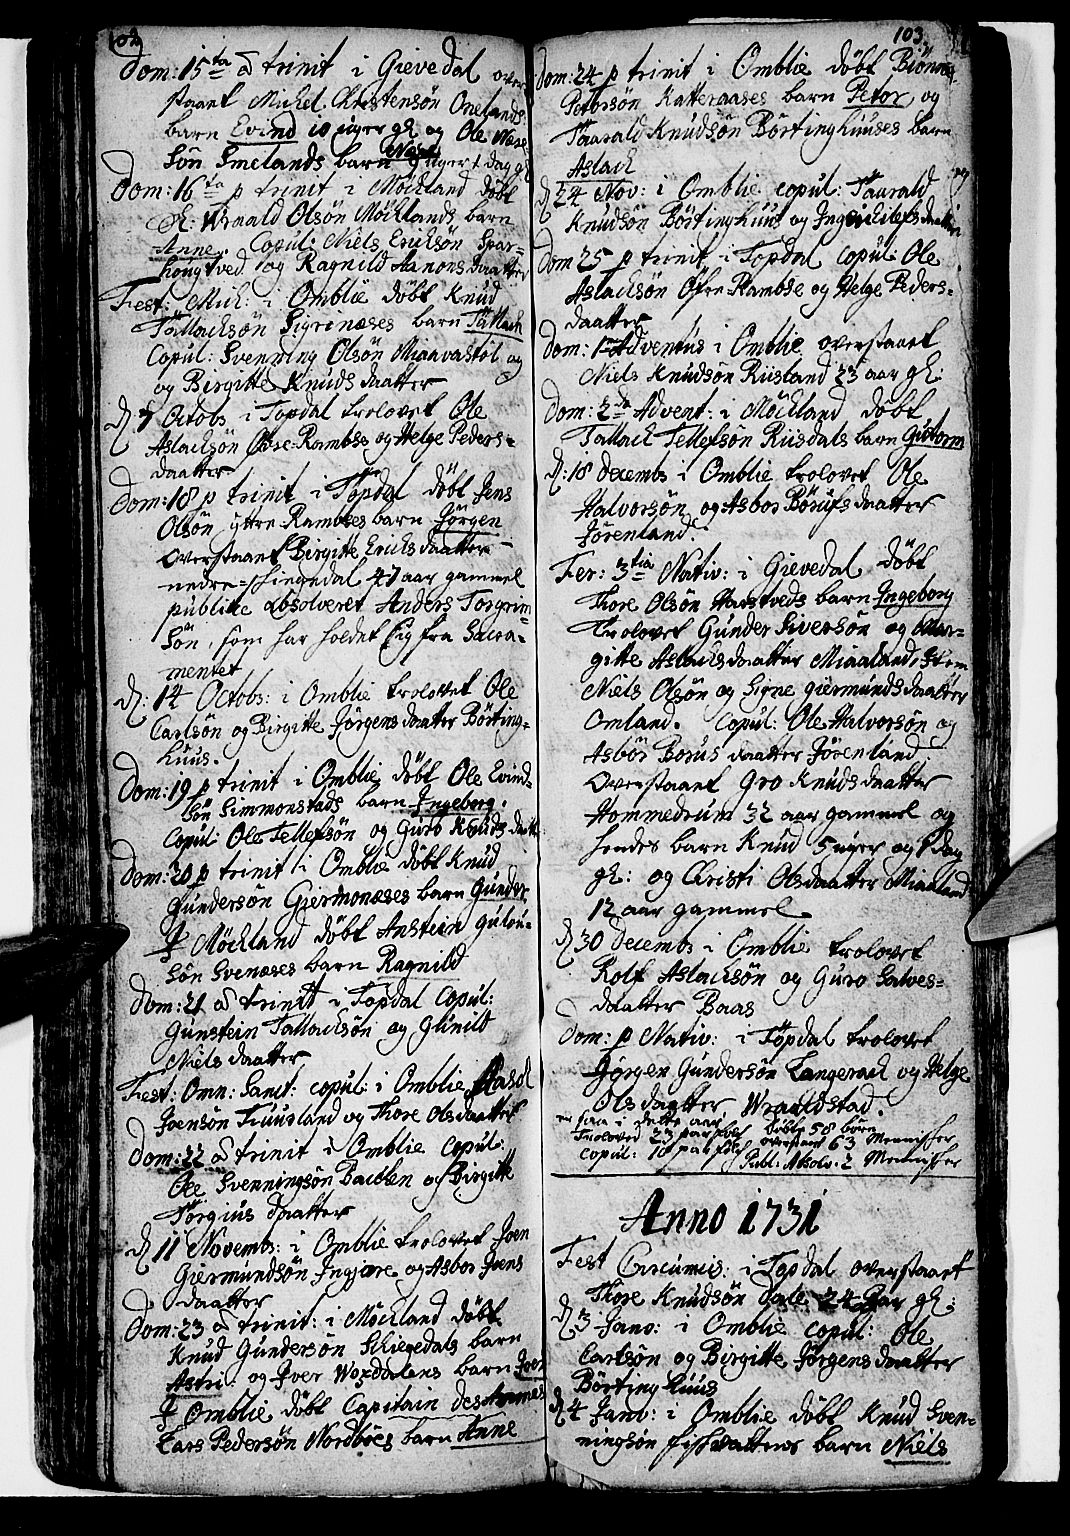 102
Dom: 15ta a trinit i Gievedal over-
staaet Michel Christensøn Onelands
barn Evind 10 uger gl: og Ole Næse-
søn Smelands barn Næse 9 uger 1 dag gl
Dom: 16ta p trinit i Møckland døbt
H: Wraald Olsøn Møcklands barn
Anne. Copul: Niels Ericksøn Spar-
hougtved og Ragnild Aanons daatter
Fest: Mich: i Omblie døbt Knud
Tallacksøn Sigrinæses barn Tallach
Copul: Svenning Olsøn Miaavastøl og
og Birgitte Knuds daatter
D: 7 Octobr i Topdal trolovet Ole
Aslacksøn Øvre-Rambse og Helge Peders-
daatter
Dom: 18 p trinit i Topdal døbt Jens
Olsøn yttre Rambses barn Jørgen
overstaaet Birgitte Erichs daatter
nedre- 47 aar gammel
publice absolveret Anders Torgrim
søn, som har holdet sig fra Sacra-
mentet
D: 14 Octobr: i Omblie trolovet Ole
Carlsøn og Birgitte Jørgens daatter Børting-
huus.
Dom: 19 p trinit i Omblie døbt Ole Evind-
søn Simmonstads barn Ingeborg.
Copul: Ole Tellefsøn og Guro Knuds daatt
Dom: 20 p trinit i Omblie døbt Knud
Gundersøn Giermonæses barn Gunder
I Møckland døbt Anstein Gulou-
søn Svenæses barn Ragnild
Dom: 21 a trinit i Topdal Copul:
Gunstein Tallacksøn og Gunild
Niels daatter
Fest: Omn: Sanct: copul: i Omblie Aasol
Joensøn Tuusland og Thore Ols daatter
Dom: 22 a trinit i Omblie Copul:
Ole Svenningsøn Bachen og Birgitte
Torgius daatter
D: 11 Novembr: i Omblie trolovet Joen
Giermundsøn Ingiære og Asbor Joens
daatter
Dom: 23 a trinit: i Møckland døbt
Knud Gundersøn Skieredals barn
Astri. og Iver Waxdalens barn Joen
I Omblie døbt Capitain des Armes
Lars Pedersøn Nordbøes barn Anne
103
Dom: 24 p trinit i Omblie døbt Biønne
Petersøn Katteraases barn Petor, og
Taarald Knudsøn Børtinghuuses barn
Aslach
D: 24 Nov: i Omblie copul: Taarald
Knudsøn Børtinghuus og Inger Eilefs daatter
Dom 25 p trinit i Topdal copul: Ole
Aslacksøn Øfre-Rambse og Helge Peders-
daatter
Dom: 1 Adventus i Omblie overstaaet
Niels Knudsøn Riisland 23 aar gl:
Dom: 2da Advent: i Møckland døbt
Tallach Tellefsøn Riisdals barn Guttorm
D: 18 decembr i Omblie trolovet Ole
Halvorsøn og Asbor Børufs daatter
Jørenland.
Fer: 3tia Nativ: i Gievedal døbt
Thore Olsøn Harstveds barn Ingeborg
Trolovet Gunder Siversøn og Mar-
gitte Aslachs daatter Miaaland, Item
Niels Olsøn og Signe giermunds daatter
Omland. Copul: Ole Halvorsøn og
Asbor Borus daatter Jørenland
Overstaaet Gro Knuds daatter
Hommedrum 32 aar gammel og
hendes barn Knud 5 uger og 1 dag
gl: og Christi Olsdaatter Miaaland
12 aar gammel
D: 30 Decembr i Omblie trolovet
Rolf Aslacksøn og Guro Salves-
daatter Baas
Dom: p Nativ: i Topdal trolovet
Jørgen Gundersøn Langerach og Helge
Ols daatter Wraaldstad.
er saa i dette aar
Troloved 23 par folk Døbte 58 børn
copul: 18 par folk overstaaet 63 Mennisker
Publ: Absolv: 2 Mennisker
Anno 1731
Fest Circumcis: i Topdal overstaaet
Thore Knudsøn Dale 24 aar gl:
D: 3 Janv: i Omblie copul: Ole
Carlsøn og Birgitte Jørgens daatter
Børtinghuus
D: 4 Janv: i Omblie døbt Knud Sven-
ningsøn Fishvattens barn Niels